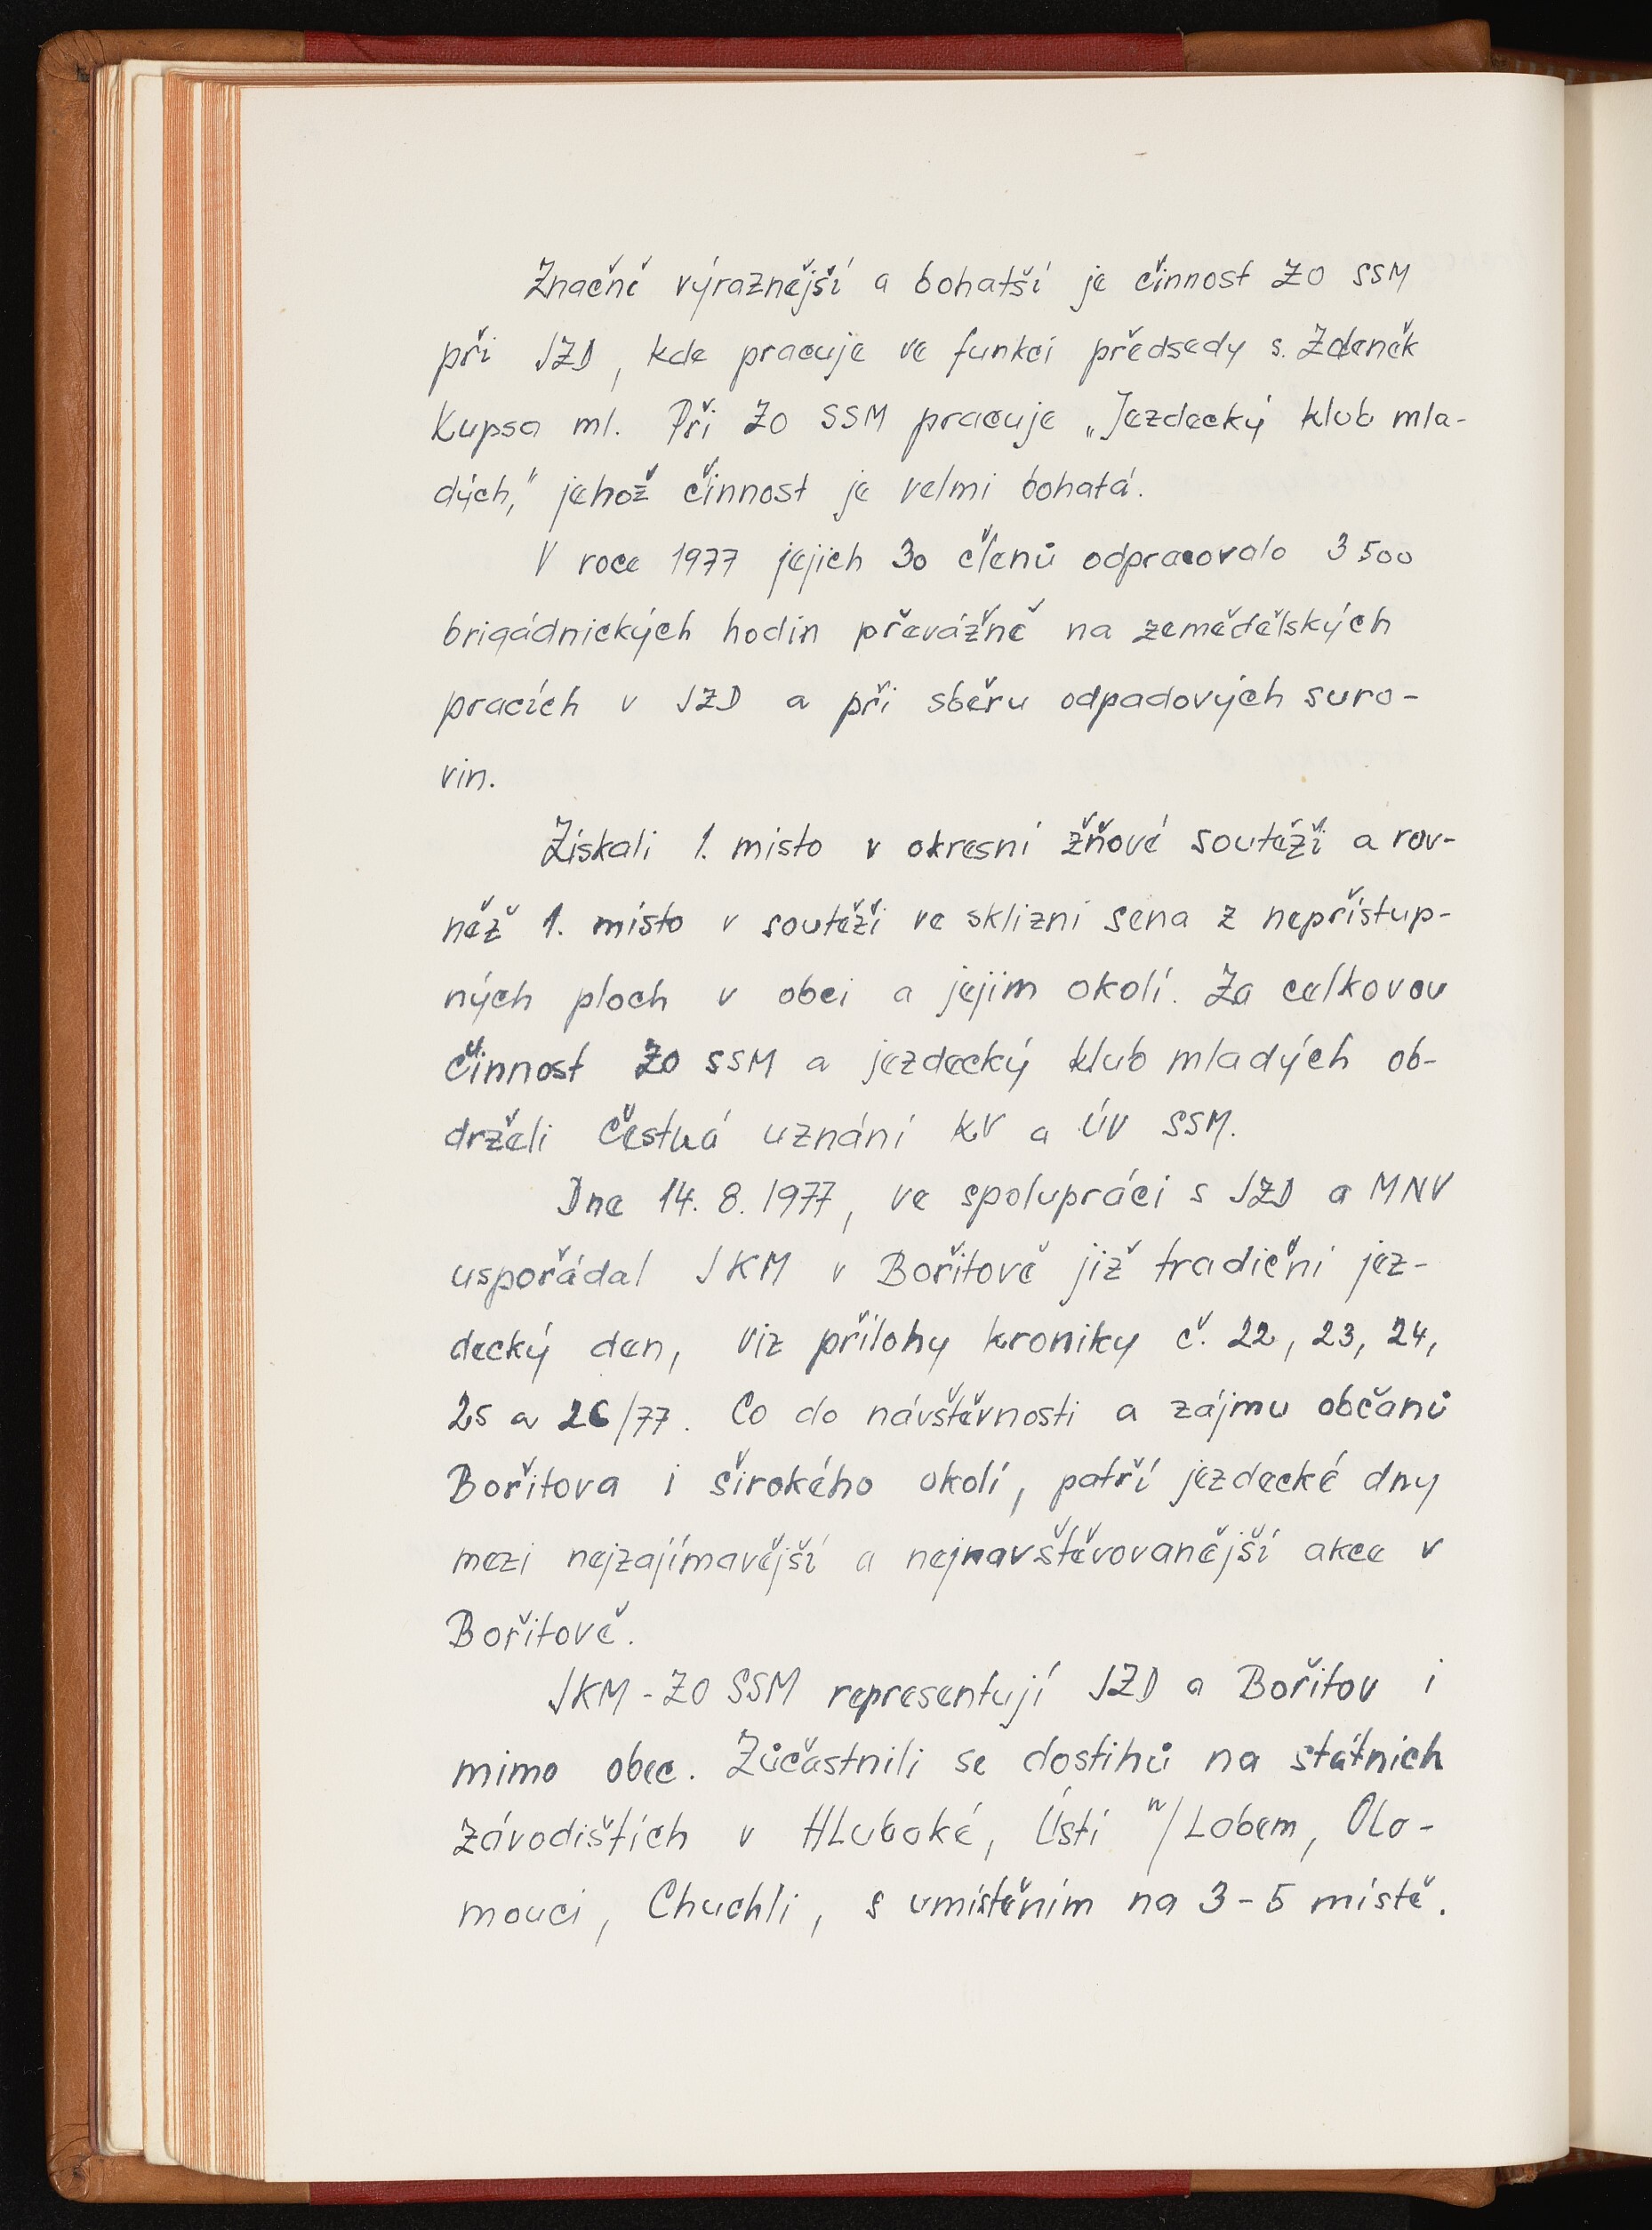 Značně výraznější a bohatší je činnost ZO SSM
při JZD, kde pracuje ve funkci předsedy s. Zdeněk
Kupsa ml. Při ZO SSM pracuje „Jezdecký klub mla-
dých," jehož činnost je velmi bohatá.
V roce 1977 jejich 30 členů odpracovalo 3 500
brigádnických hodin převážně na zemědělských
pracích v JZD a při sběru odpadových suro-
vin.
Získali 1. místo v okresní žňové soutěži a rov-
něž 1. místo v soutěži ve sklizni sena z nepřístup-
ných ploch v obci a jejím okolí. Za celkovou
činnost ZO SSM a jezdecký klub mladých ob-
drželi čestná uznání KV a ÚV SSM.
Dne 14. 8. 1977, ve spolupráci s JZD a MNV
uspořádal JKM v Bořitově již tradiční jez-
decký den, viz přílohy kroniky č. 22, 23, 24,
25 a 26/77. Co do návštěvnosti a zájmu občanů
Bořitova i širokého okolí, patří jezdecké dny
mezi nejzajímavější a nejnavštěvovanější akce v
Bořitově.
JKM - ZO SSM representují JZD a Bořitov i
mimo obec. Zůčastnili se dostihů na státních
závodištích v HLuboké, Ústí n/Labem, Olo-
mouci, Chuchli, s umístěním na 3-5 místě.